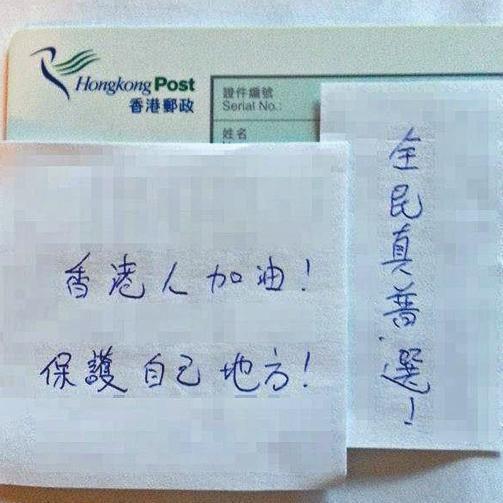 Hongkong Post
香港郵政
證件編號
Serial No.:
姓名
香港人加油!
保護自己地方!
全民真普選!